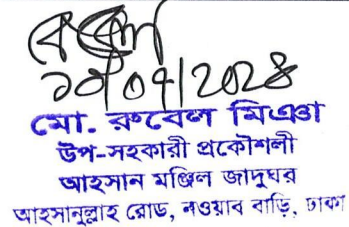 ১০/০৭/২০২৪
মো. রুবেল মিঞা
উপ-সহকারী প্রকৌশলী
আহসান মঞ্জিল জাদুঘর
আহসানুল্লাহ রোড, নওয়াব বাড়ি, ঢাকা